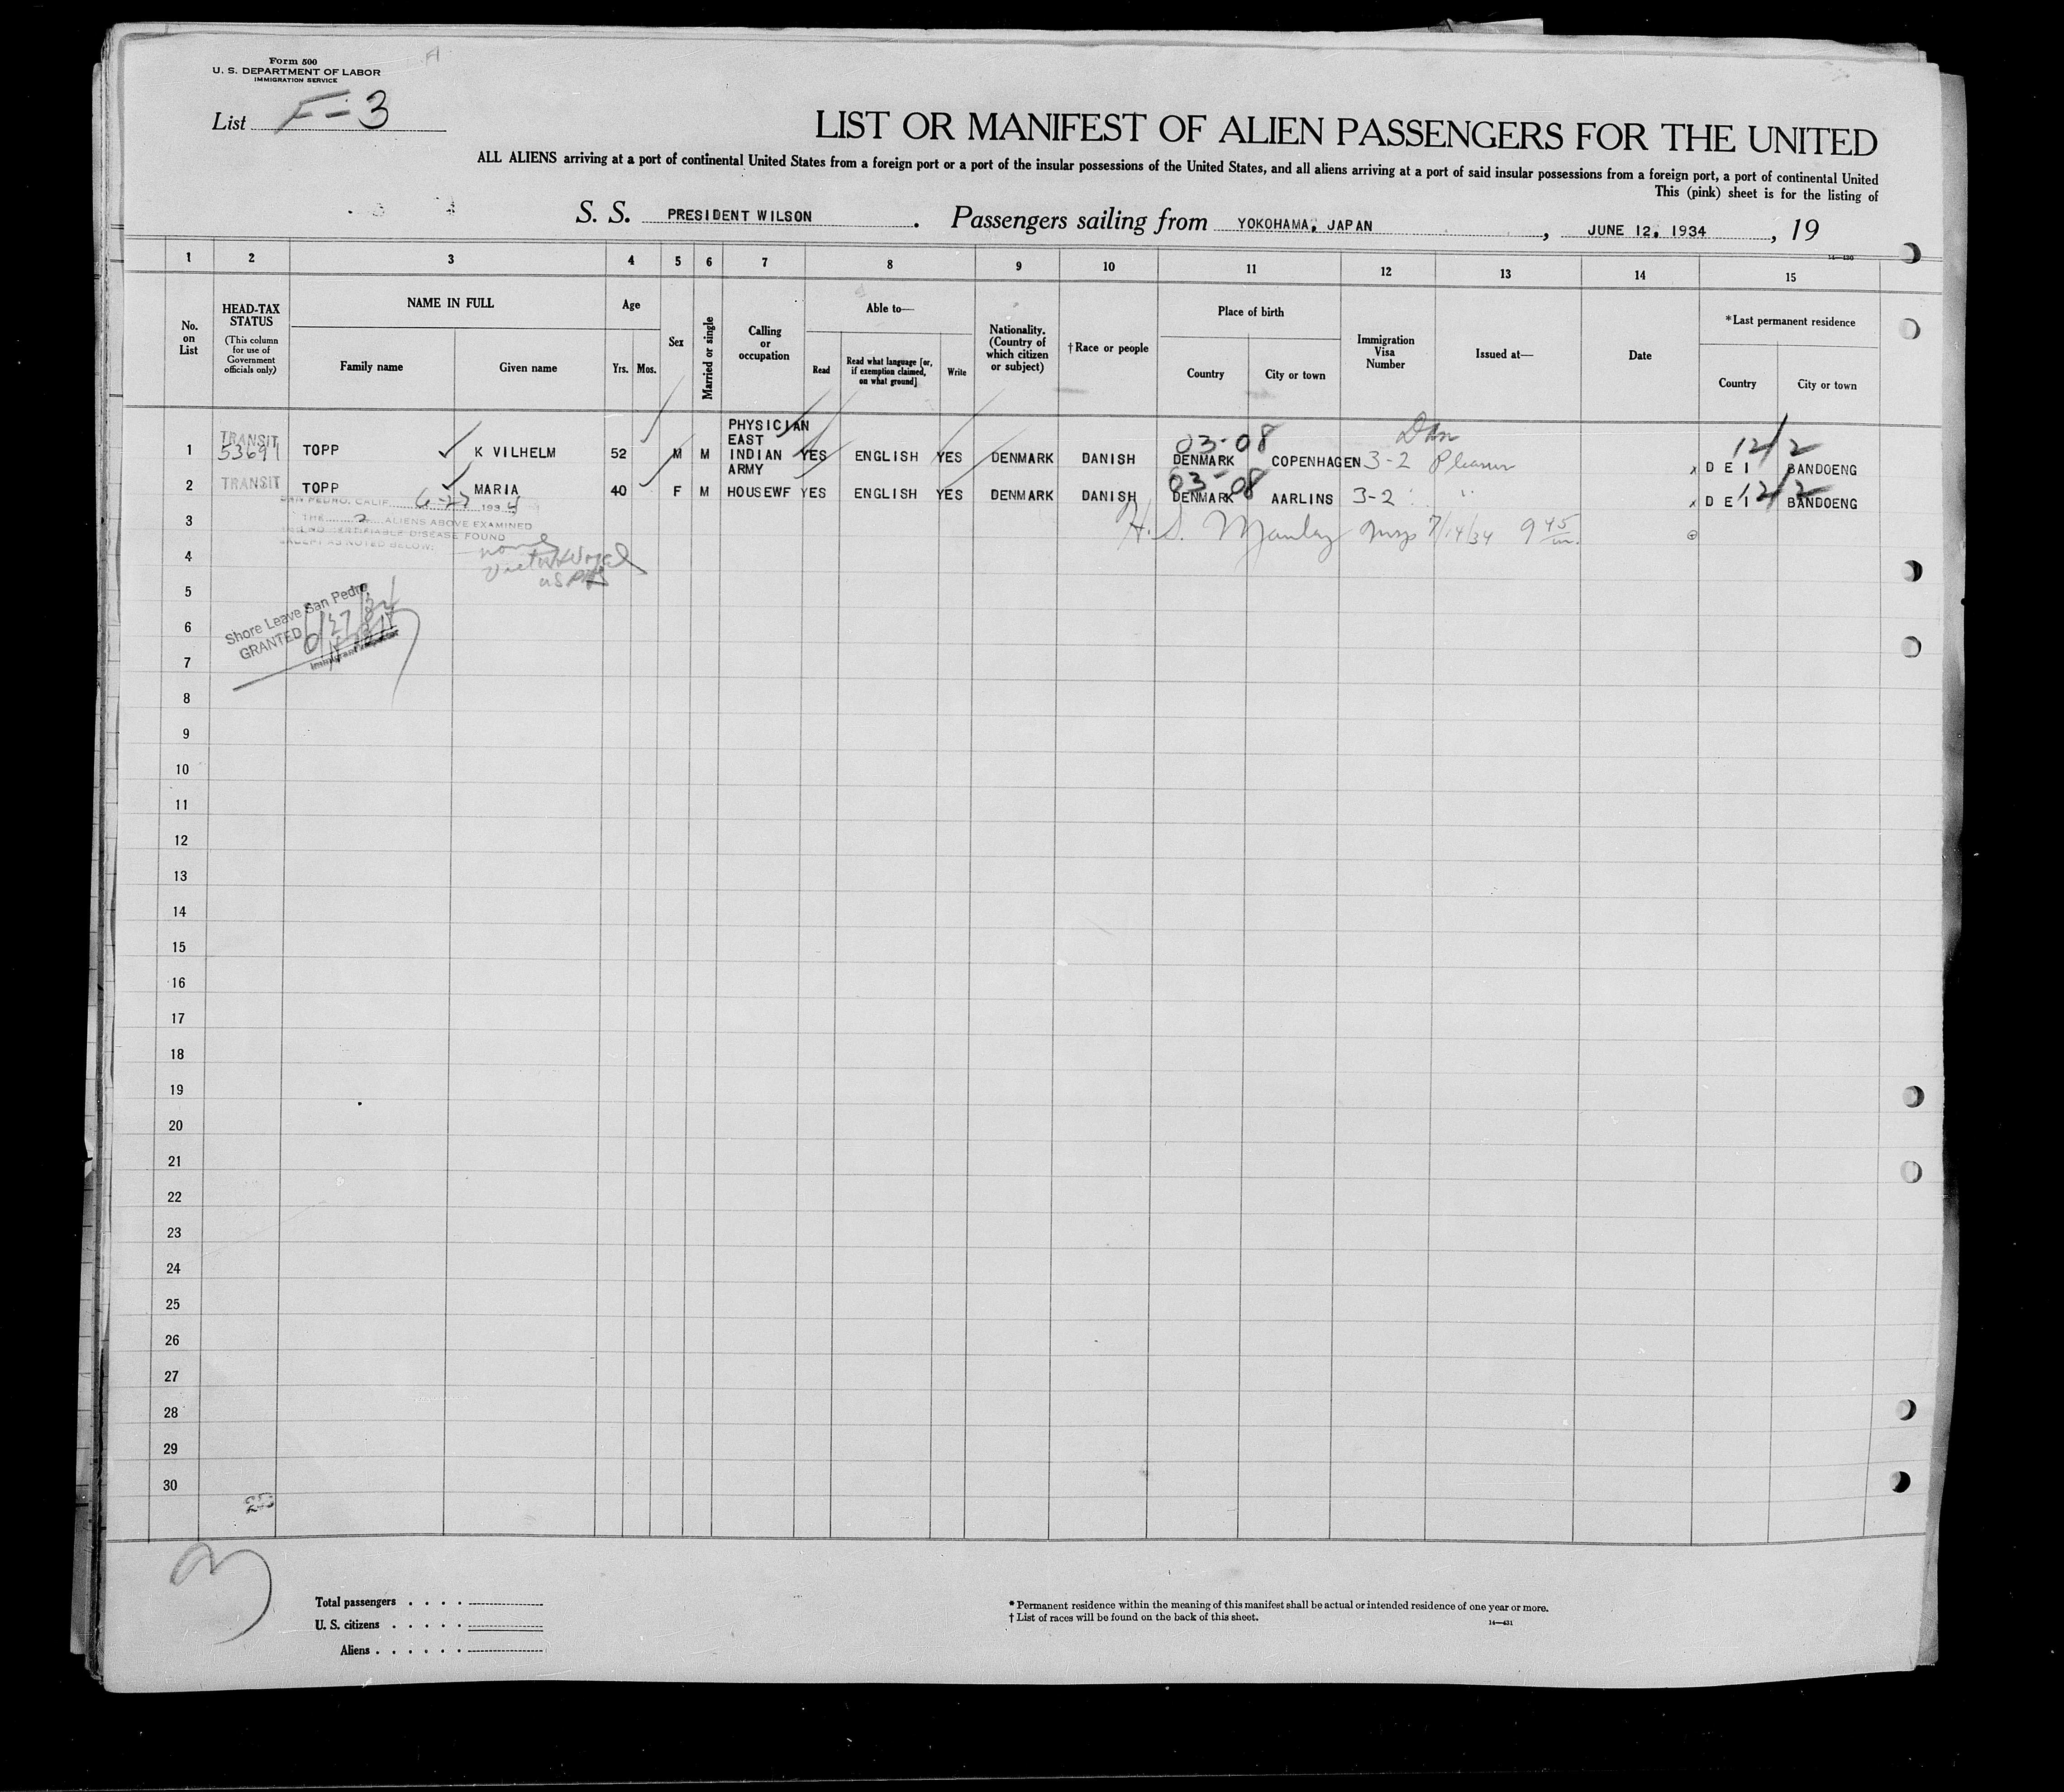 Form 500
U. S. DEPARTMENT OF LABOR
IMMIGRATION SERVICE
List F-3
LIST OR MANIFEST OF ALIEN PASSENGERS FOR THE UNITED
ALL ALIENS arriving at a port of continental United States from a foreign port or a port of the insular possessions of the United States, and all aliens arriving at a port of said insular possessions from a foreign port, a port of continental United
This (pink) sheet is for the listing of
S. S. PRESIDENT WILSON . Passengers sailing from YOKOHAMA, JAPAN , JUNE 12, 1934 , 19
14—430
1 2 3 4 5 6 7 8 9 10 11 12 13 14 15
No. on List
HEAD-TAX STATUS
(This column for use of Government officials only)
NAME IN FULL
Family name
Given name
Age
Yrs. Mos.
Sex
Married or single
Calling or occupation
Able to—
Read
Read what language [or, if exemption claimed, on what ground]
Write
Nationality. (Country of which citizen or subject)
†Race or people
Place of birth
Country
City or town
Immigration Visa Number
Issued at—
Date
*Last permanent residence
Country
City or town
1 TRANSIT 53691 TOPP K VILHELM 52 M M PHYSICIAN EAST INDIAN ARMY YES ENGLISH YES DENMARK DANISH 03-08 DENMARK COPENHAGEN 3-2 12/2 x D E I BANDOENG
2 TRANSIT TOPP MARIA 40 F M HOUSEWF YES ENGLISH YES DENMARK DANISH 03-08 DENMARK AARLINS 3-2 " 12/2 x D E I BANDOENG
SAN PEDRO, CALIF. 6-27 1934
THE 2 ALIENS ABOVE EXAMINED
AND NO CERTIFIABLE DISEASE FOUND
EXCEPT AS NOTED BELOW:
none
USPHS
H. S. Manley Insp 7/14/34 9 45
3
4
5
Shore Leave San Pedro
GRANTED 6/27/34
Immigrant Inspector
6
7
8
9
10
11
12
13
14
15
16
17
18
19
20
21
22
23
24
25
26
27
28
29
30
Total passengers . . . .
U. S. citizens . . . . .
Aliens . . . . . .
* Permanent residence within the meaning of this manifest shall be actual or intended residence of one year or more.
† List of races will be found on the back of this sheet.
14—431